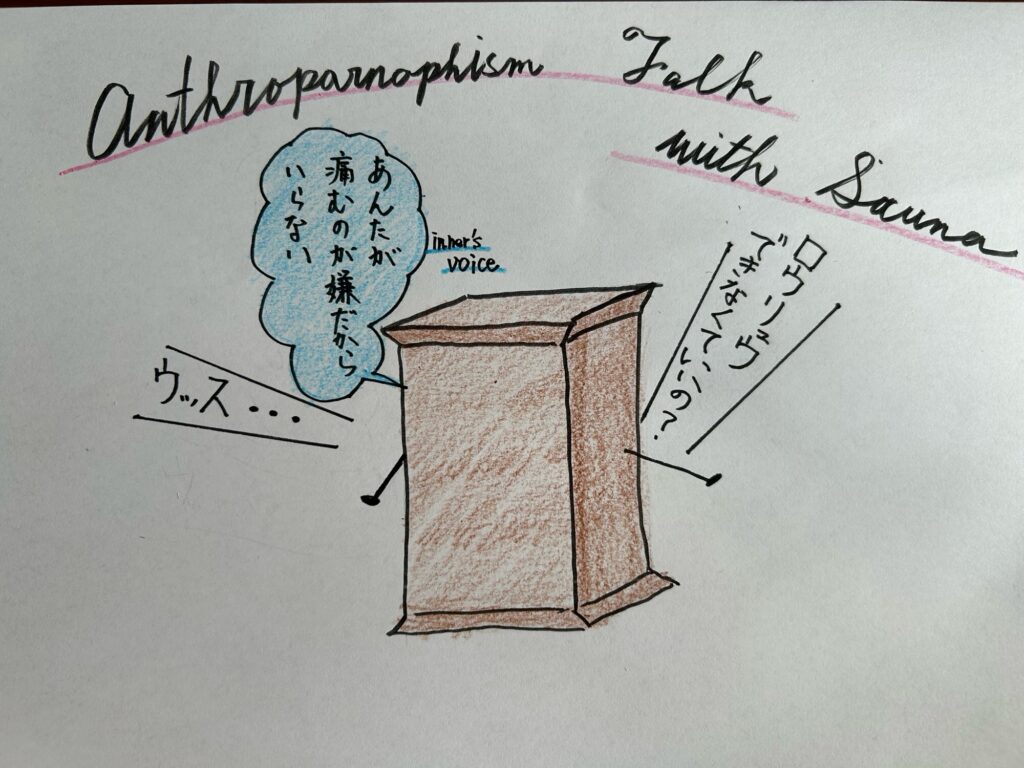 Anthroparnophism Talk
with Sauna
あんたが
痛むのが嫌だから
いらない
inner's
voice
ロウリュウ
できなくていいの?
ウッス...